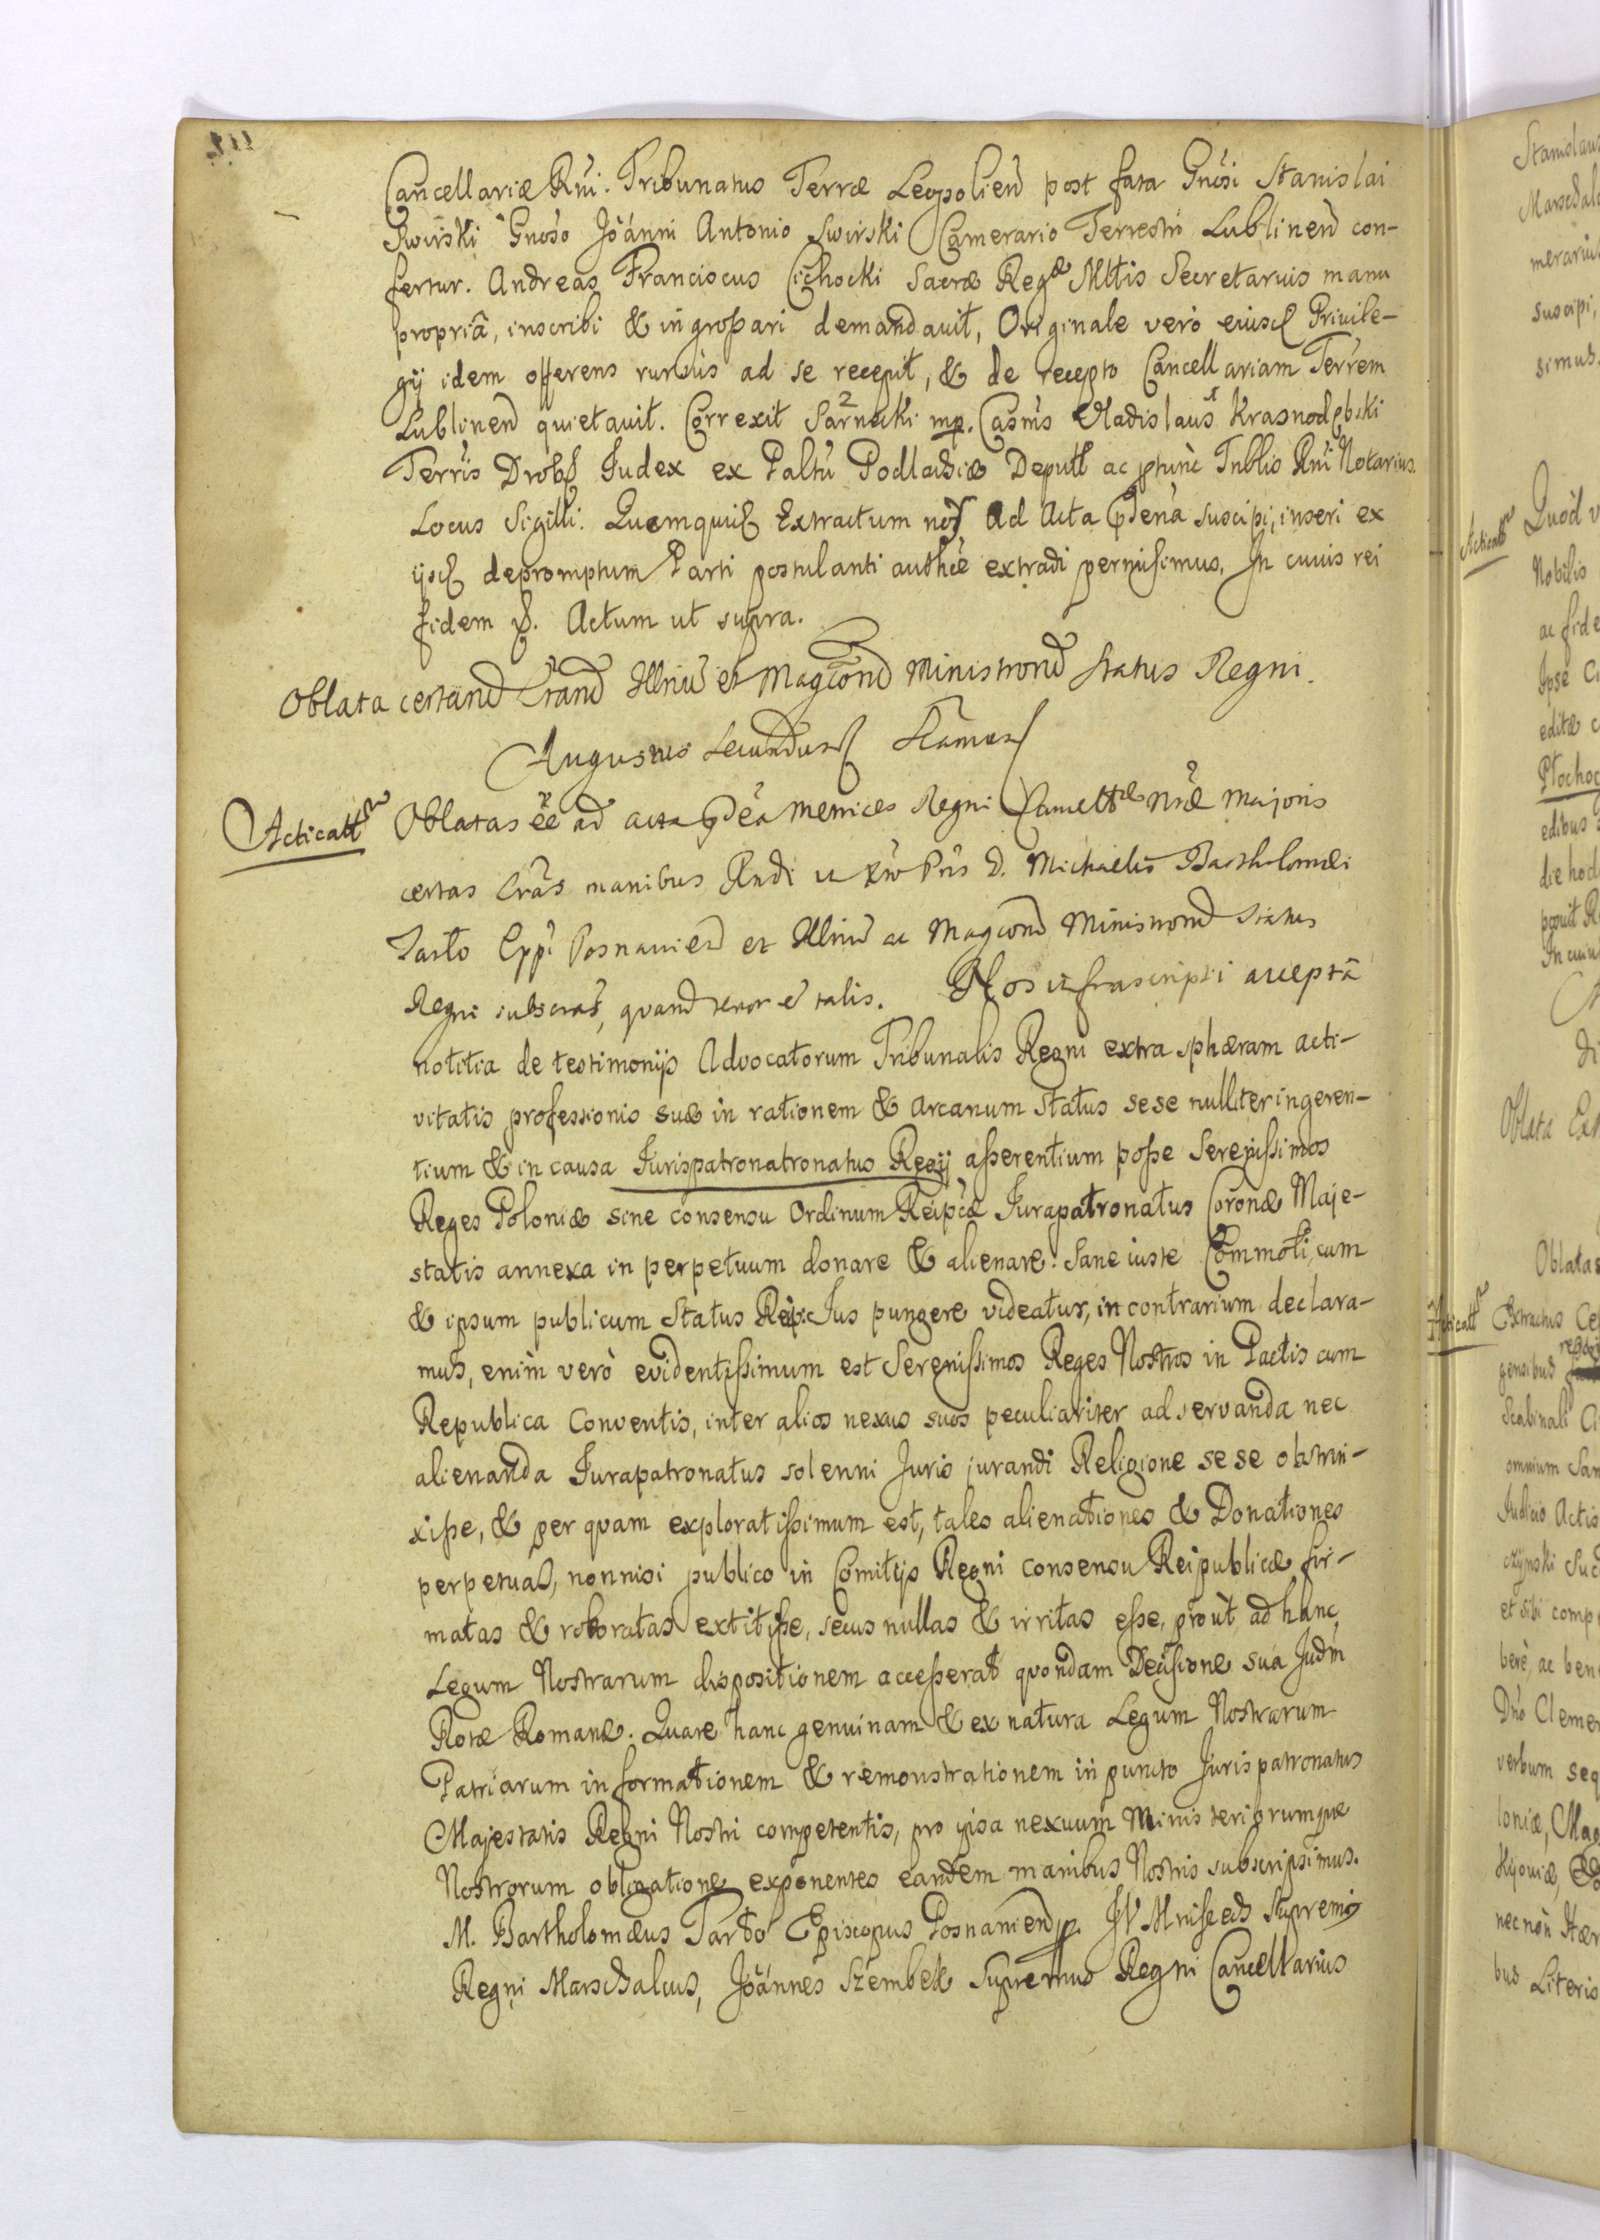 Cancellariæ Rni. Tribunatus Terræ Leopolien post fata Gnosi Stanislai
Swirski Gnoso Joanni Antonio Swirski Camerario Terrestri Lublinen con-
fertur. Andreas Franciscus Cichocki Sacræ Regæ Mttis Secretarius manu
propriâ, inscribi & ingrossari demandavit, Originale verò eiusd Privile-
gij idem offerens rursus ad se recepit, & de recepto Cancellariam Terrem
Lublinen quietavit. Correxit Sarnecki mp. Casms Vladislaus Krasnodębski
Terris Droh Judex ex Paltu Podlachiæ Deputt ac ptunc Tnblis Rni Notarius
Locus Sigilli. Quemquid Extractum nos Ad Acta pdena suscipi, inseri ex
ijsd depromptum Parti postulanti authce extradi permisimus. In cuius rei
fidem &. Actum ut supra.
Oblata certarum Lrarum Illrium et Magcorum Ministrorum Status Regni.
Augustus Secundus
Acticatt
Oblatas ee ad acta pdea Metrices Regni Cancellæ Nræ Majoris
certas Lras manibus Rndi in Xto Pris D. Michaelis Bartholomæi
Tarło Eppi Posnanien et Illrium ac Magcorum Ministrorum Status
Regni subscras, quarum tenor e talis. Nos infrascripti acceptâ
notitia de testimonijs Advocatorum Tribunalis Regni extra sphæram acti-
vitatis professionis suæ in rationem & Arcanum Status sese nulliter ingeren-
tium & in causa Jurispatronatronatus Regij asserentium posse Serenissimos
Reges Poloniæ sine consensu Ordinum Reipcæ Jurapatronatus Coronæ Maje-
statis annexa in perpetuum donare & alienare. Sane iuste Commoti, cum
& ipsum publicum Status Reipc Jus pungere videatur, in contrarium declara-
mus, enim verò evidentissimum est Serenissimos Reges Nostros in Pactis cum
Republica Conventis, inter alios nexus suos peculiariter adservanda nec
alienanda Jurapatronatus solenni Juris jurandi Religione sese obstrin-
xisse, & per quam exploratissimum est, tales alienationes & Donationes
perpetuas, nonnisi publico in Comitijs Regni consensu Reipublicæ fir-
matas & roboratas extitisse, secus nullas & irritas esse, prout ad hanc
Legum Nostrarum dispositionem accesserat quondam Decisione sua Judm
Rotæ Romanæ. Quare hanc genuinam & ex natura Legum Nostrarum
Patriarum informationem & remonstrationem in puncto Jurispatronatus
Majestatis Regni Nostri competentis, pro ipsa nexuum Ministeriorumque
Nostrorum obligatione exponentes eandem manibus Nostris subscripsimus.
M. Bartholomæus Tarło Episcopus Posnanien mp. JV Mniszech Supremus
Regni Marschalcus, Joannes Szembek Supremus Regni Cancellarius